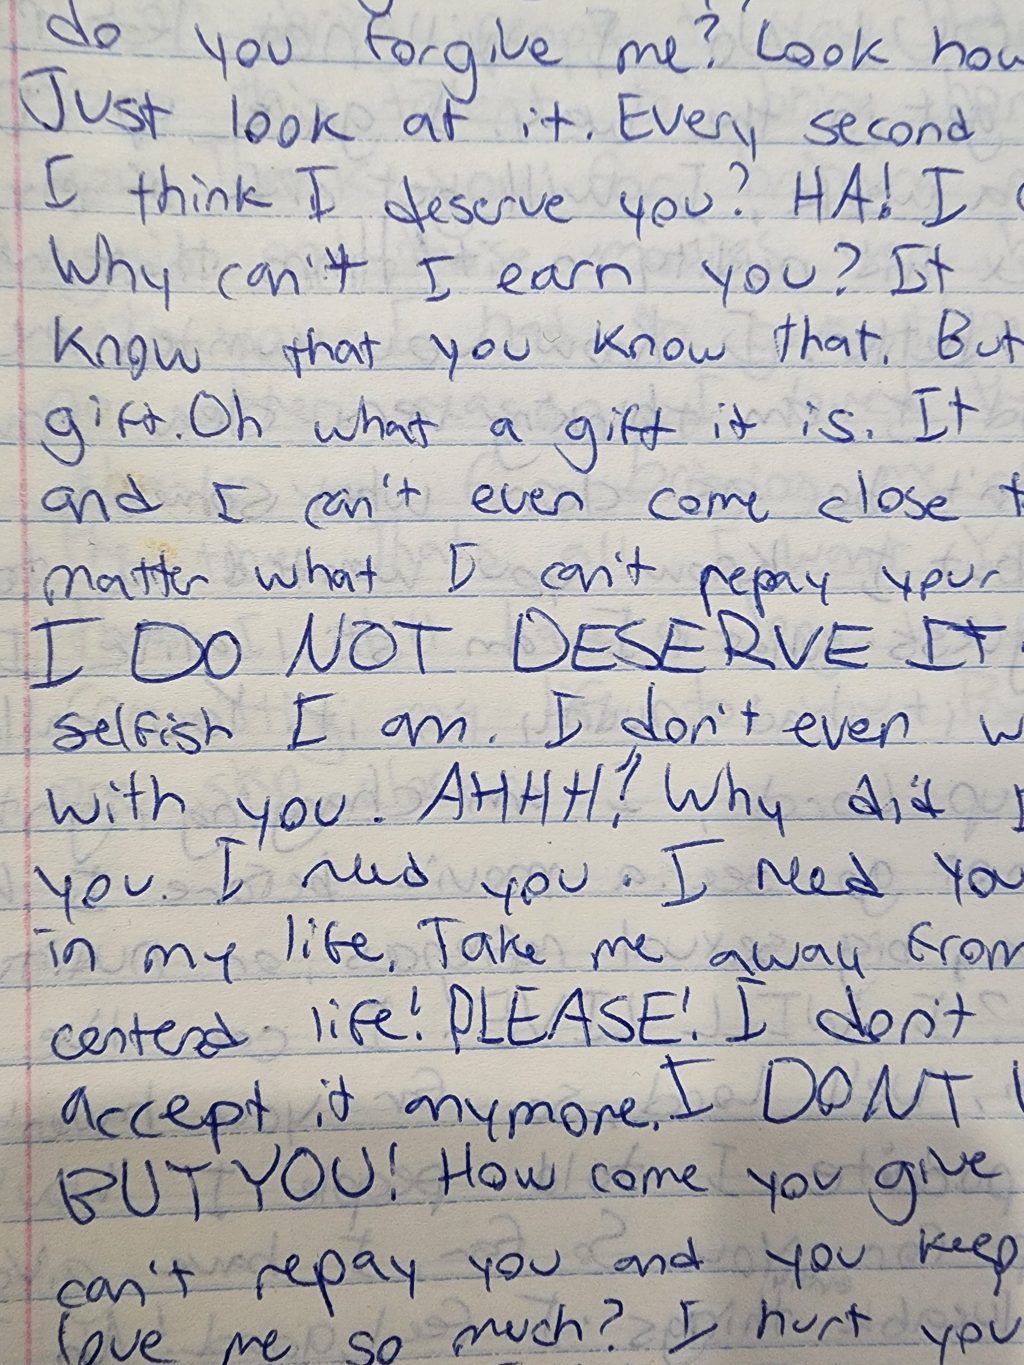 do you forgive me? Look how
Just look at it. Every second
I think I deserve you? HA! I
Why can't I earn you? It
know that you know that. But
gift. Oh what a gift it is. It
and I can't even come close
matter what I can't repay your
I DO NOT DESERVE IT
selfish I am. I don't even
with you. AHHH! Why did I
you. I need you. I need you
in my life. Take me away from
centerd life! PLEASE! I don't
accept it anymore. I DONT
BUT YOU! How come you give
can't repay you and you keep
love me so much? I hurt you